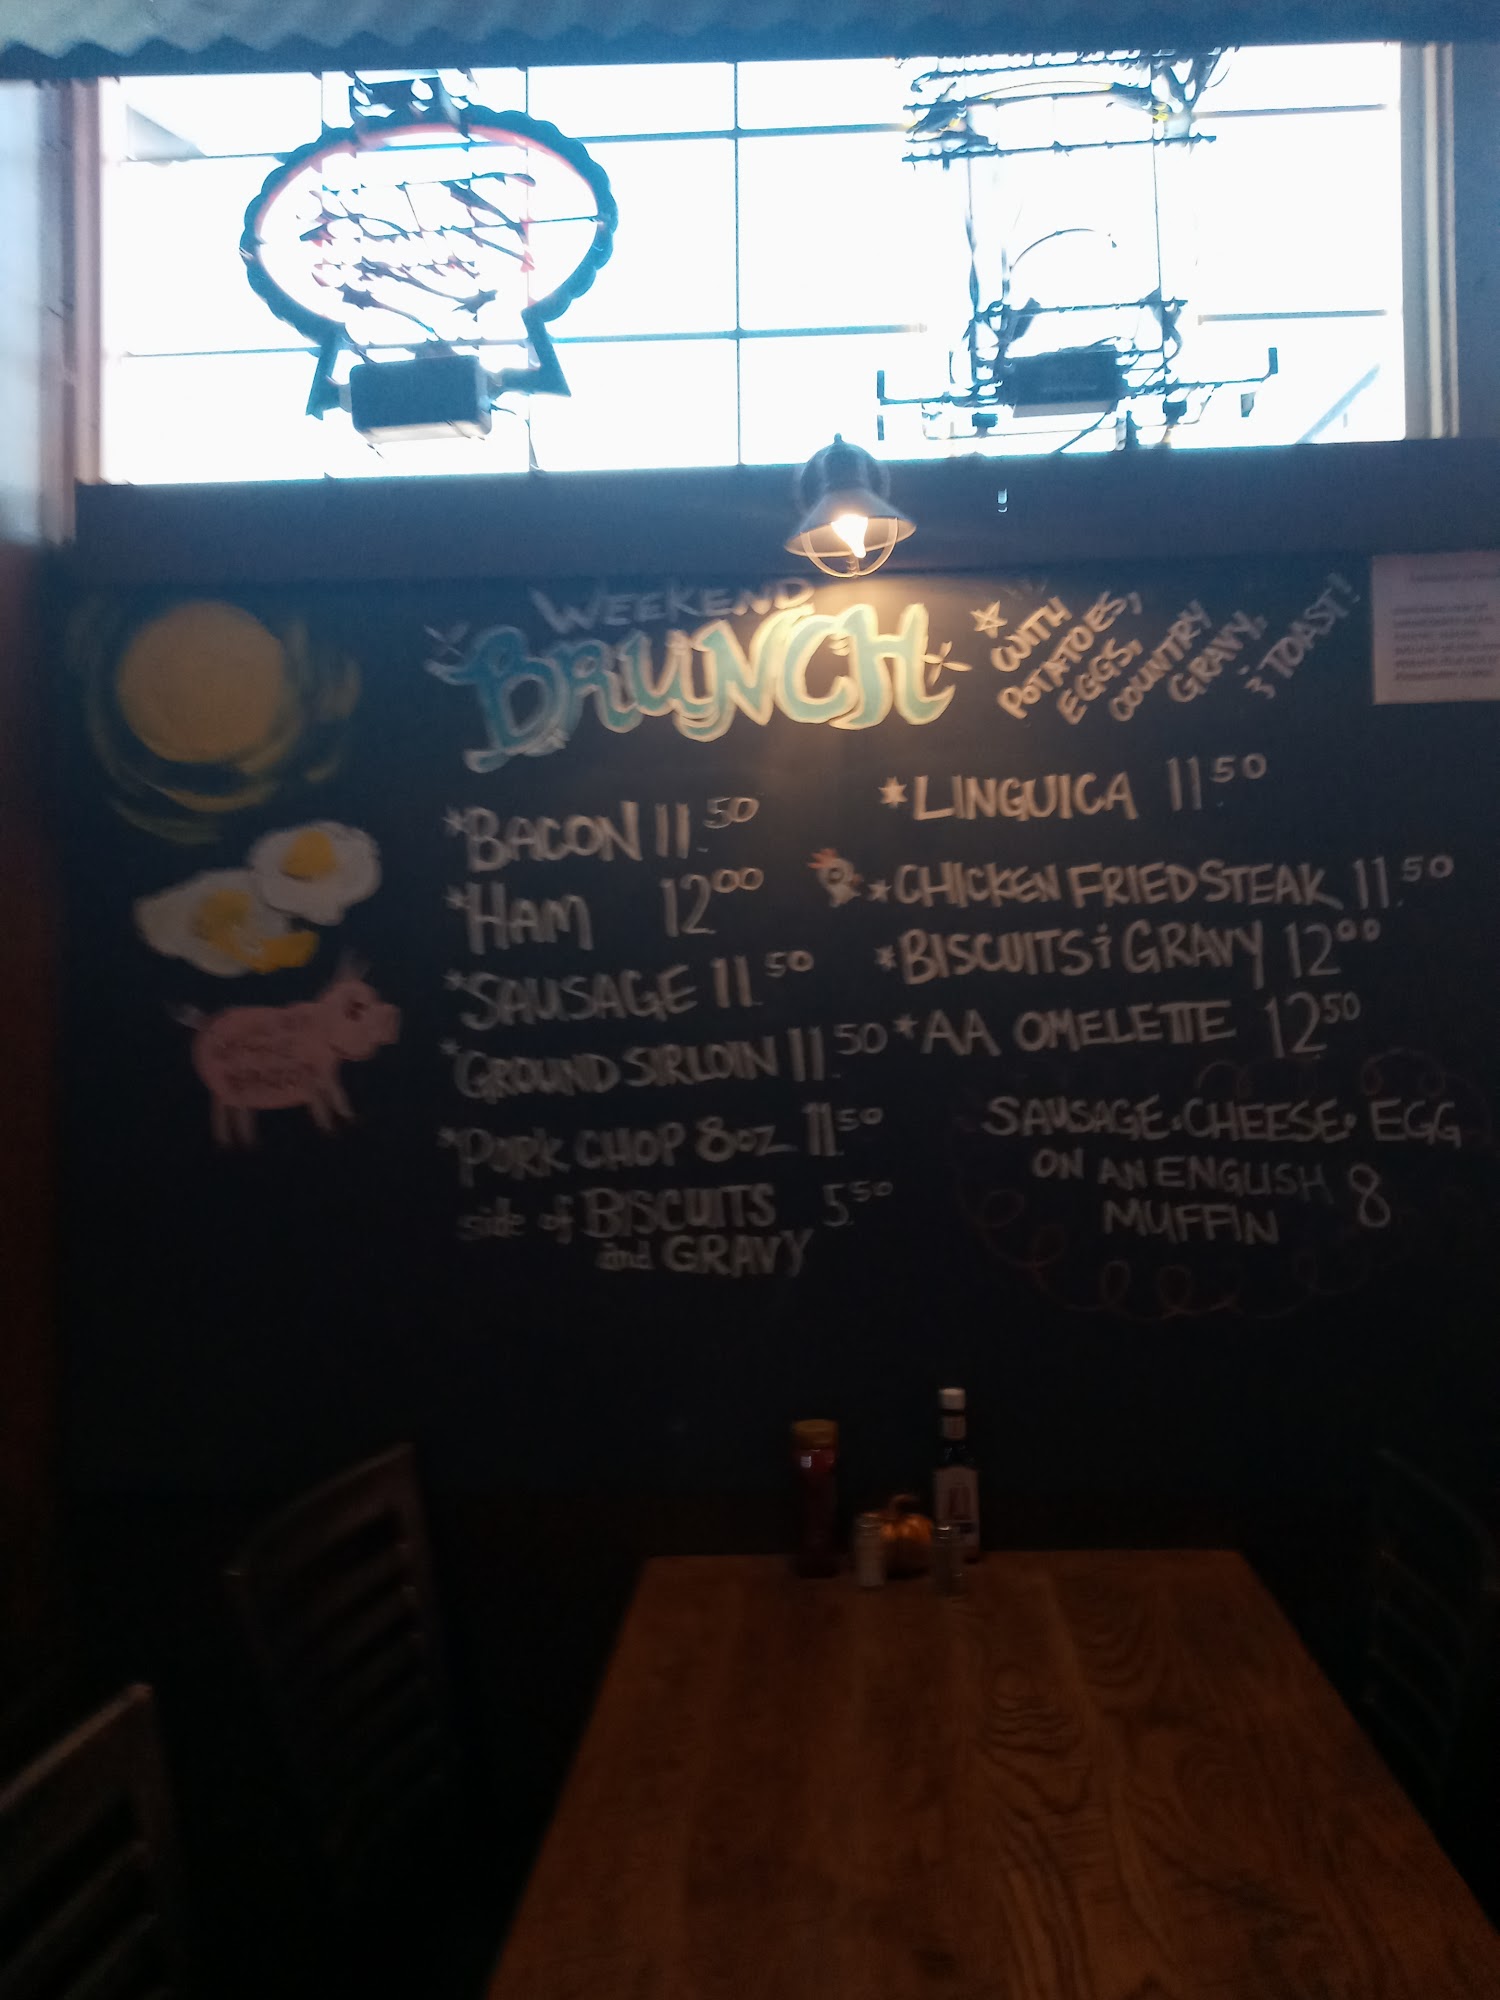 WEEKEND
BRUNCH
* WITH
POTATOES,
EGGS,
COUNTRY
GRAVY,
& TOAST!
*BACON 11.50
*HAM 12.00
*SAUSAGE 11.50
*GROUND SIRLOIN 11.50
*PORK CHOP 8oz 11.50
side of BISCUITS 5.50
and GRAVY
*LINGUICA 11.50
*CHICKEN FRIED STEAK 11.50
*BISCUITS & GRAVY 12.00
*AA OMELETTE 12.50
SAUSAGE · CHEESE · EGG
ON AN ENGLISH 8
MUFFIN